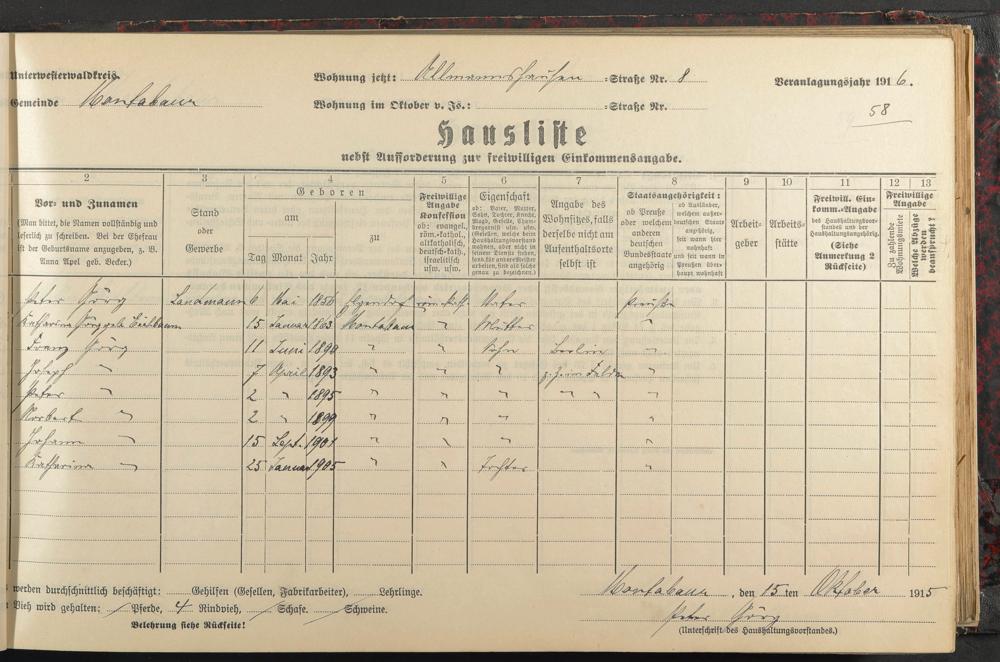 Unterwesterwaldkreis.
Gemeinde Montabaur
Wohnung jetzt: Allmannshausen =Straße Nr. 8
Wohnung im Oktober v. Js.: =Straße Nr.
Veranlagungsjahr 1916.
58
Hausliste
nebst Aufforderung zur freiwilligen Einkommensangabe.
2 3 4 5 6 7 8 9 10 11 12 13
Vor- und Zunamen
(Man bittet, die Namen vollständig und
leserlich zu schreiben. Bei der Ehefrau
ist der Geburtsname anzugeben, z. B.
Anna Apel geb. Becker.)
Stand
oder
Gewerbe
Geboren
am
zu
Tag Monat Jahr
Freiwillige
Angabe
Konfession
ob: evangel.,
röm.-kathol.,
altkatholisch,
deutsch-kath.,
israelitisch
usw. usw.
Eigenschaft
ob: Vater, Mutter,
Sohn, Tochter, Knecht,
Magd, Geselle,
Angabe des
Wohnsitzes, falls
derselbe nicht am
Aufenthaltsorte
selbst ist
Staatsangehörigkeit:
ob Preuße
oder welchem
anderen
deutschen
Bundesstaate
angehörig
ob Ausländer,
welchem außer-
deutschen Staate
angehörig,
seit wann hier
wohnhaft
und seit wann in
Preußen über-
haupt wohnhaft
Arbeit-
geber
Arbeits-
stätte
Freiwill. Ein-
komm.-Angabe
des Haushaltungsvor-
standes und der
Haushaltungsangehörig.
(Siehe
Anmerkung 2
Rückseite)
Freiwillige
Angabe
Zu zahlende
Wohnungsmiete
Welche Abzüge
werden
beansprucht?
Peter Görg Landmann 6 Mai 1856 Elgendorf röm. kath. Vater Preuße
Katharina Görg geb. 15 Januar 1863 Montabaur " Mutter "
Franz Görg 11 Juni 1890 " " Sohn Berlin "
Joseph " 7 April 1893 " " " z. Z. im Felde "
Peter " 2 " 1895 " " " " " "
Norbert " 2 " 1899 " " " "
Johann " 15 Sept. 1901 " " " "
Katharina " 25 Januar 1905 " " Tochter "
werden durchschnittlich beschäftigt: Gehilfen (Gesellen, Fabrikarbeiter), Lehrlinge.
Vieh wird gehalten: / Pferde, 4 Rindvieh, / Schafe. / Schweine.
Belehrung siehe Rückseite!
Montabaur, den 15 ten Oktober 1915
Peter Görg
(Unterschrift des Haushaltungsvorstandes.)